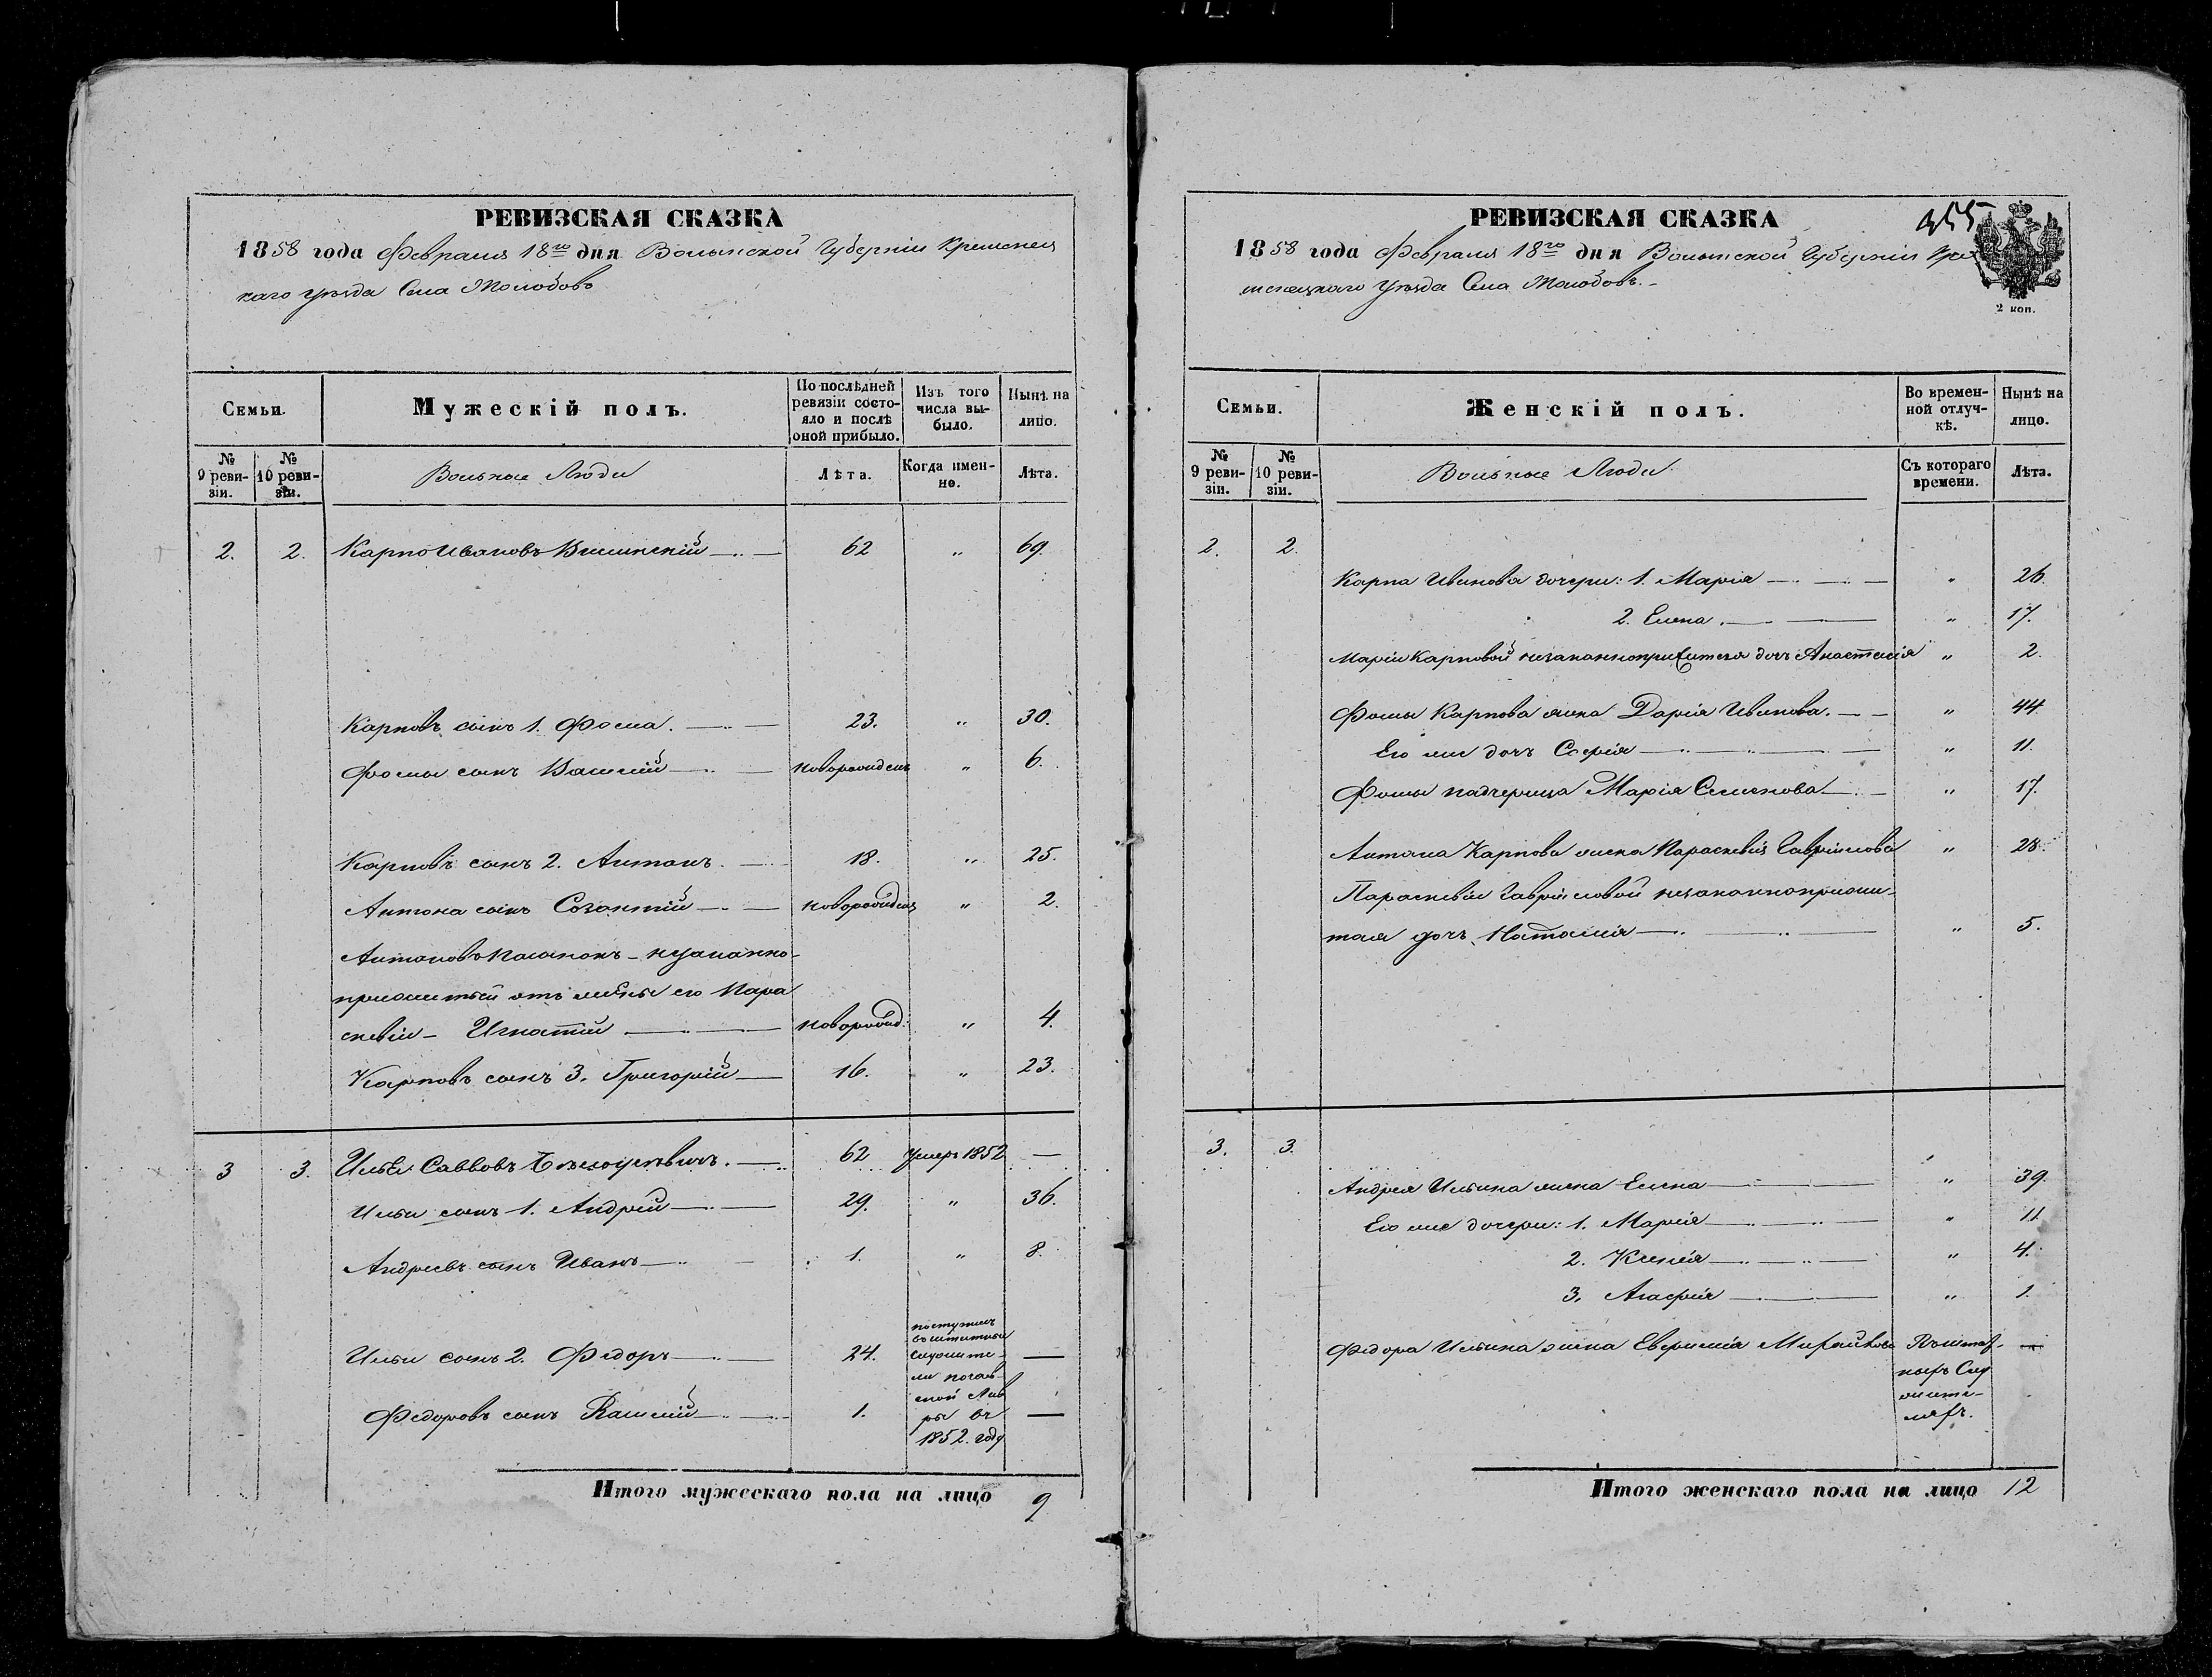 РЕВИЗСКАЯ СКАЗКА
1858 года Февраля 18го дня Волынской Губерніи Кременец
каго Уѣзда Села Молодовъ
Семьи.
Мужескій полъ.
По послѣдней ревизіи состояло и послѣ оной прибыло.
Изъ того числа выбыло.
Нынѣ на лицо.
№ 9 ревизіи.
№ 10 ревизіи.
Вольные Люди
Лѣта.
Когда именно.
Лѣта.
2. 2. Карпо Ивановъ 62 " 69.
Карповъ сынъ 1. Фома. 23. " 30.
Фомы сынъ Василій новорожденъ " 6.
Карповъ сынъ 2. Антонъ. 18. " 25.
Антона сынъ Созантій новорожденъ " 2.
Антоновъ пасынокъ - незаконно-
прижитый отъ жены его Пара
скевіи - Игнатій новорожд: " 4.
Карповъ сынъ 3. Григорій 16. " 23.
3 3. Илья Саввовъ 62 Умеръ 1852 —
Ильи сынъ 1. Андрей 29. " 36.
Андреевъ сынъ Иванъ 1. " 8.
Ильи сынъ 2. Федоръ 24. —
Федоровъ сынъ Василій 1. —
поступилъ
въ штатные
служите-
ли почаев-
ской Лав
ры въ
1852. году
Итого мужескаго пола на лицо 9
РЕВИЗСКАЯ СКАЗКА
455
1858 года Февраля 18го дня Волынской Губерніи Кре
менецкаго Уѣзда Села Молодовъ.
2 коп.
Семьи.
Женскій полъ.
Во временной отлучкѣ.
Нынѣ на лицо.
№ 9 ревизіи.
№ 10 ревизіи.
Вольные Люди
Съ котораго времени.
Лѣта.
2. 2.
Карпа Иванова дочери: 1. Марія " 26.
2. Елена. " 17.
Маріи Карповой незаконноприжитая дочь Анастасія " 2.
Фомы Карпова жена Дарія Иванова. " 44
Его же дочь Софія " 11.
Фомы падчерица Марія Семенова " 17.
Антона Карпова жена Параскевія Гавріилова " 28.
Параскевіи Гавріиловой незаконноприжи-
тая дочь Наталія " 5.
3. 3.
Андрея Ильина жена Елена " 39.
Его же дочери: 1. Марія " 11
2. Ксенія " 4.
3. Агафія " 1.
Федора Ильина жена Евфимія Въ штат-
ныхъ Слу
жите-
ляхъ. —
Итого женскаго пола на лицо 12